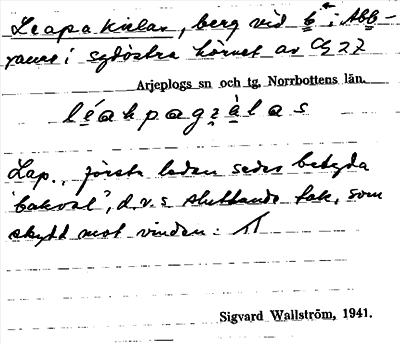 Leapakielas, berg vid b i Abb-
raure i sydöstra hörnet av Q 27
Arjeplogs sn och tg, Norrbottens län.
léakpagzàlas
Lap., första leden sedes betyda
"bakval", d.v.s sluttande tak, som
skydd mot vinden.
Sigvard Wallström, 1941.